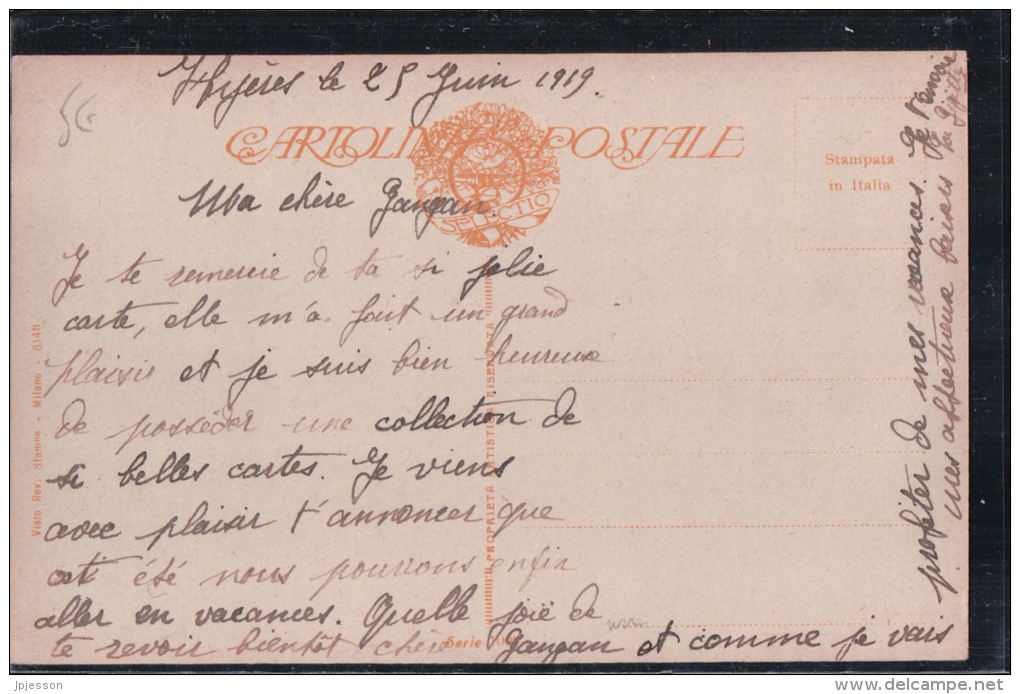 Hyères le 25 Juin 1919.
CARTOLINA POSTALE
SELECTIO
Stampata
in Italia
Ma chère Gangan.
Je te remercie de ta si jolie
carte, elle m'a fait un grand
plaisir et je suis bien heureuse
de posséder une collection de
si belles cartes. Je viens
avec plaisir t'annoncer que
cet été nous pourrons enfin
aller en vacances. Quelle joie de
te revoir bientôt chère Gangan et comme je vais
profiter de mes vacances. Je t'envoie
mes affectueux baisers
Visto Rev. Stampa - Milano - 6148
PROPRIETÀ ARTISTICA RISERVATA
Serie
5€
jpjesson
delcampe.net